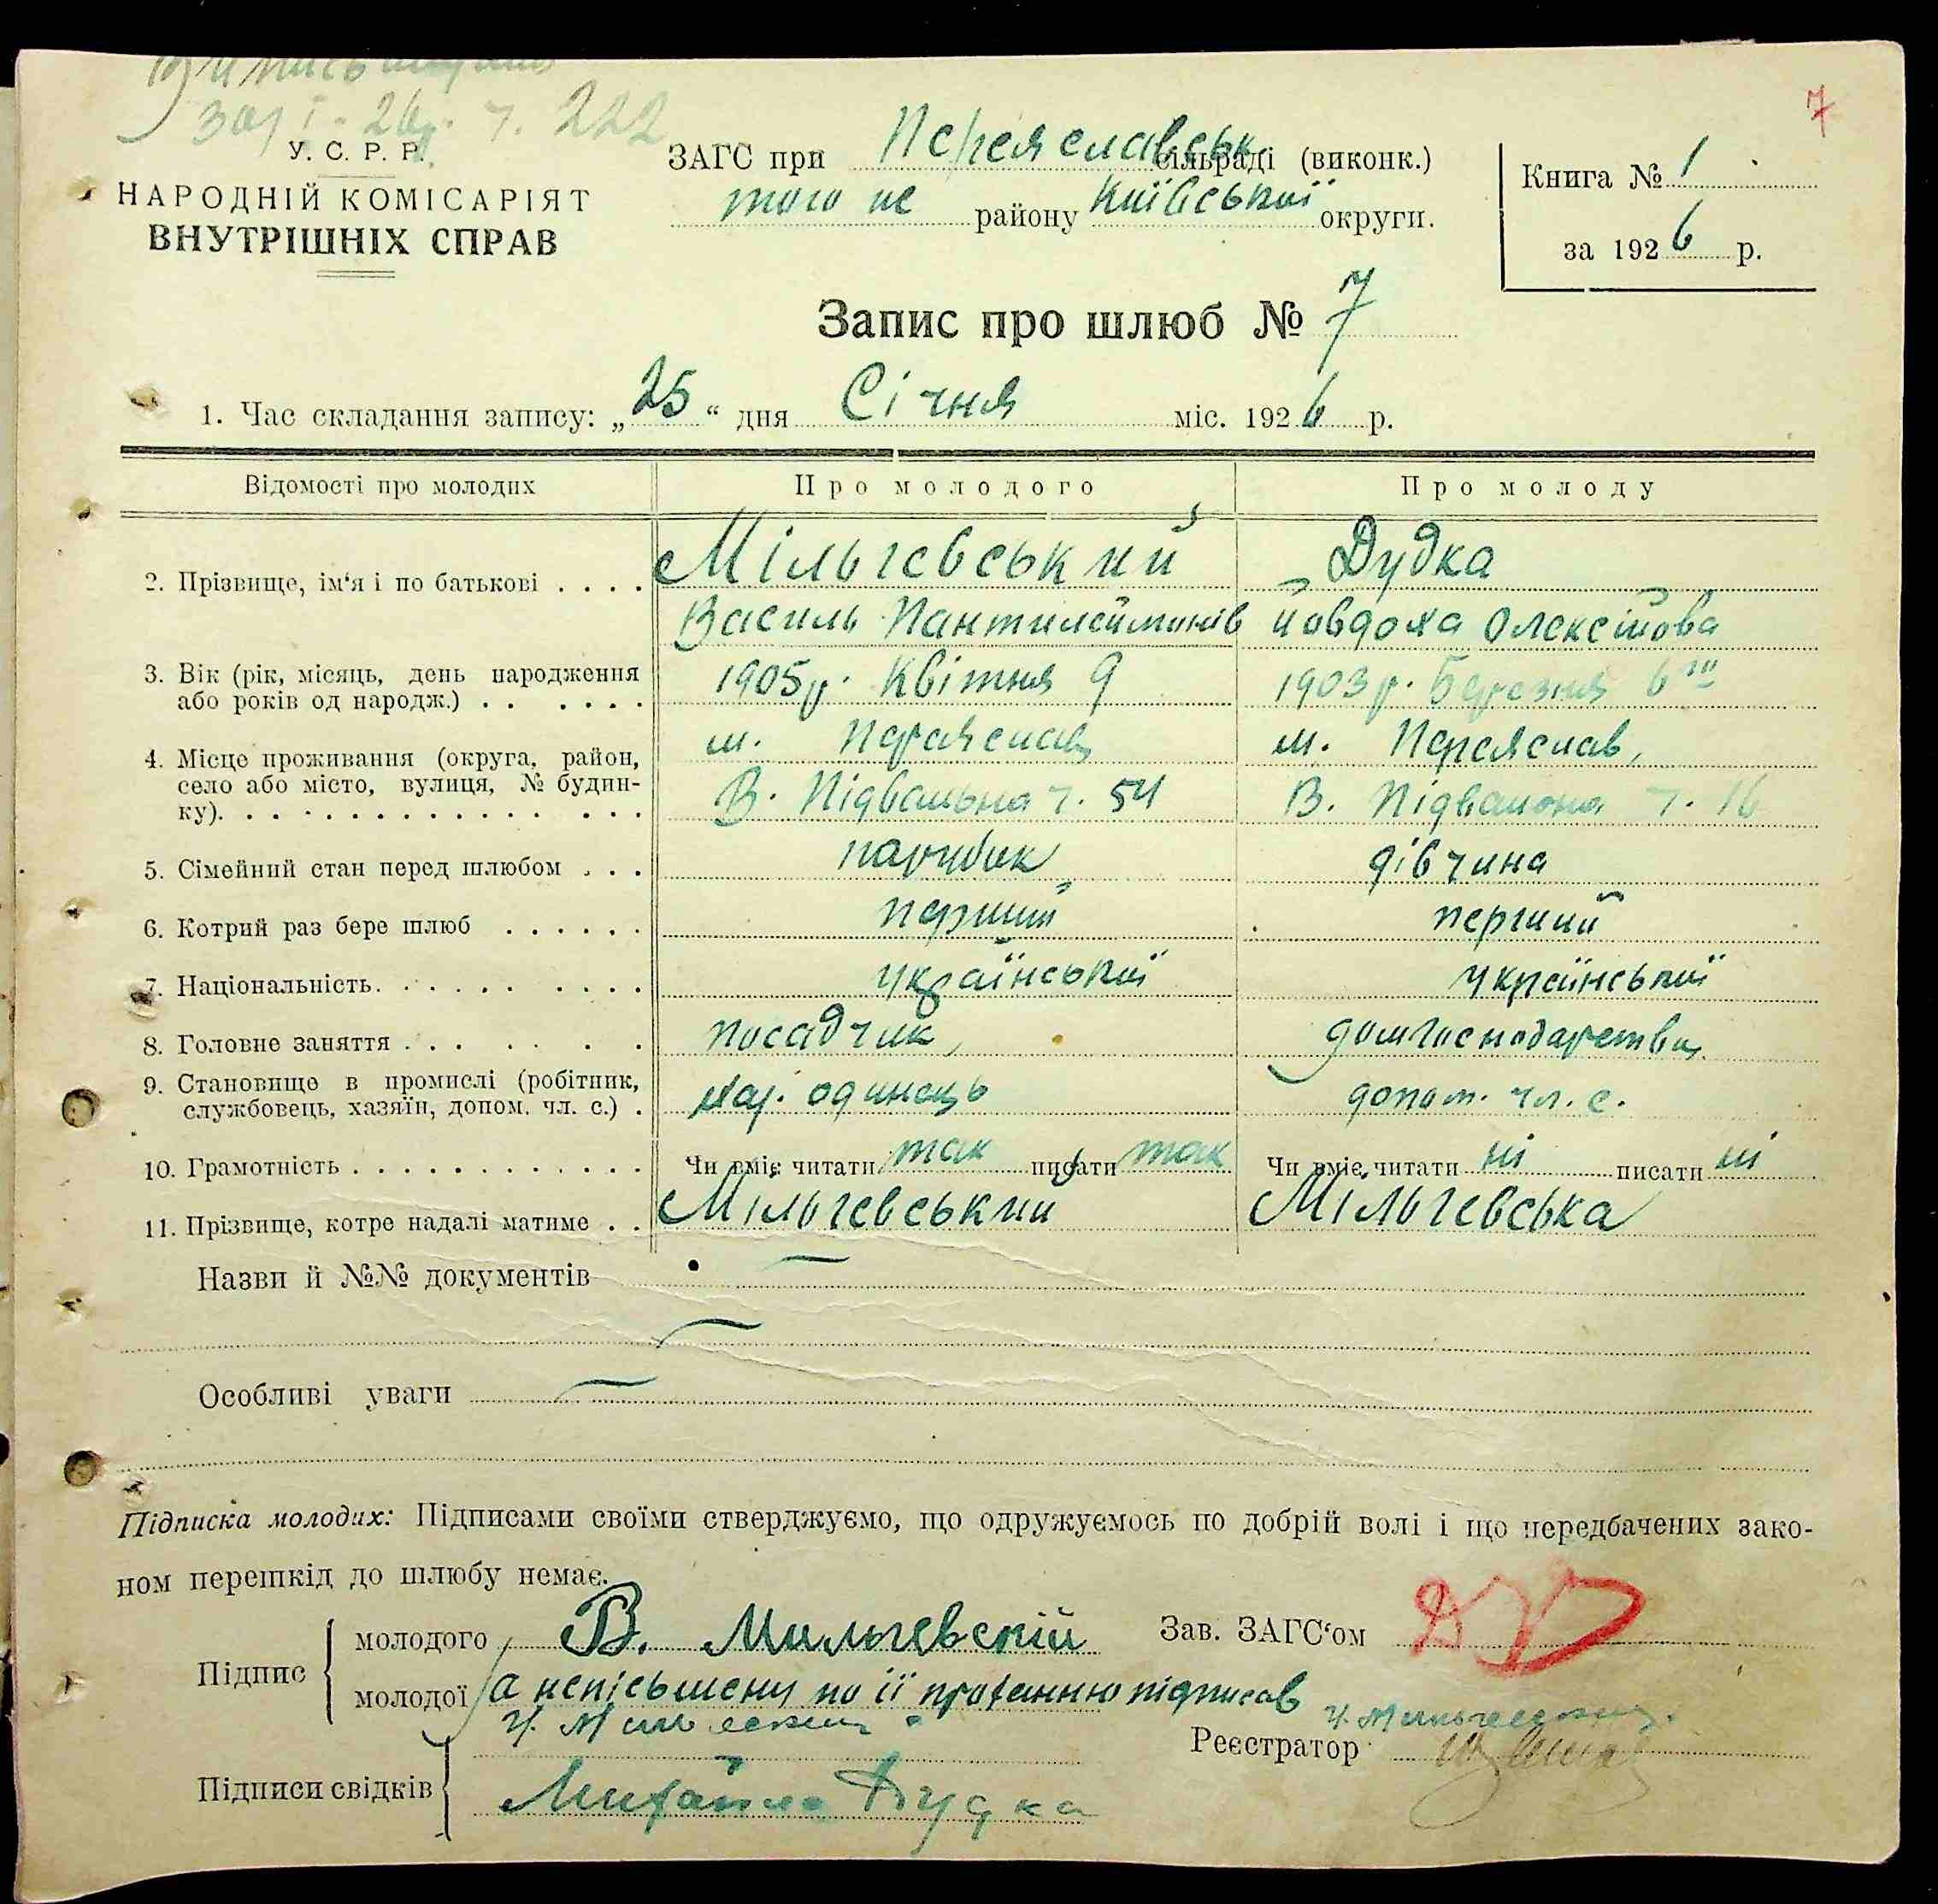 7
30/I-26 ч. 222
У. С. Р. Р.
НАРОДНІЙ КОМІСАРІЯТ
ВНУТРІШНІХ СПРАВ
ЗАГС при Переяславськ. сільраді (виконк.)
того ж району Київської округи.
Книга № 1
за 1926 р.
Запис про шлюб № 7
1. Час складання запису: „25“ дня Січня міс. 1926 р.
Відомості про молодих Про молодого Про молоду
2. Прізвище, ім‘я і по батькові . . . . Мільгевський Дудка
Василь Пантилеймонів Йовдоха Олексійова
3. Вік (рік, місяць, день народження 1905 р. Квітня 9 1903 р. Березня 6го
або років од народж.) . . . . . .
4. Місце проживання (округа, район, м. Переяслав м. Переяслав,
село або місто, вулиця, № будин- В. Підвальна ч. 54 В. Підвальна ч. 16
ку). . . . . . . . . . . . . . . .
5. Сімейний стан перед шлюбом . . . парубок дівчина
6. Котрий раз бере шлюб . . . . . . перший перший
7. Національність. . . . . . . . . . української української
8. Головне заняття . . . . . . . посадчик, домгосподарства
9. Становище в промислі (робітник, хаз. одинець допом. чл. с.
службовець, хазяїн, допом. чл. с.) .
10. Грамотність . . . . . . . . . . . . Чи вміє читати так писати так Чи вміє читати ні писати ні
11. Прізвище, котре надалі матиме . . Мільгевський Мільгевська
Назви й №№ документів —
—
Особливі уваги —
Підписка молодих: Підписами своїми стверджуємо, що одружуємось по добрій волі і що передбачених зако-
ном перешкід до шлюбу немає.
Підпис
молодого В. Мильгевскій
Зав. ЗАГС‘ом
молодої а неписьмену по її проханню підписав
Реєстратор
Підписи свідків
Михайло Дудка